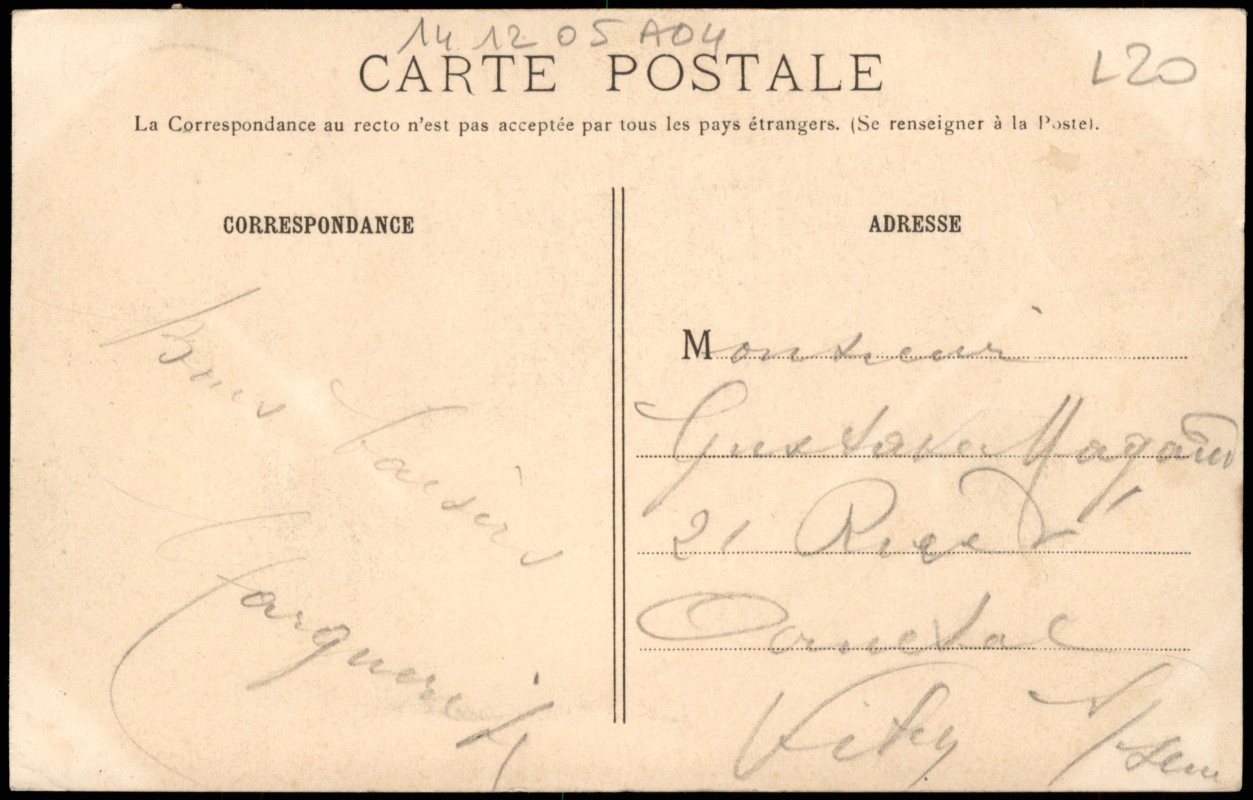 14 12 05 A04
L20
CARTE POSTALE
La Correspondance au recto n'est pas acceptée par tous les pays étrangers. (Se renseigner à la Poste).
CORRESPONDANCE
Bons baisers
Marguerite
ADRESSE
Monsieur
Gustave Magaud
21 Rue d'
Vitry s/ Seine